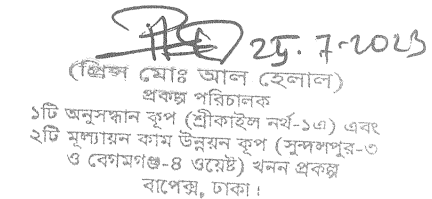 25.7-2023
(প্রিন্স মোঃ আল হেলাল)
প্রকল্প পরিচালক
১টি অনুসন্ধান কূপ (শ্রীকাইল নর্থ-১এ) এবং
২টি মূল্যায়ন কাম উন্নয়ন কূপ (সুন্দলপুর-৩
ও বেগমগঞ্জ-৪ ওয়েষ্ট) খনন প্রকল্প
বাপেক্স, ঢাকা।